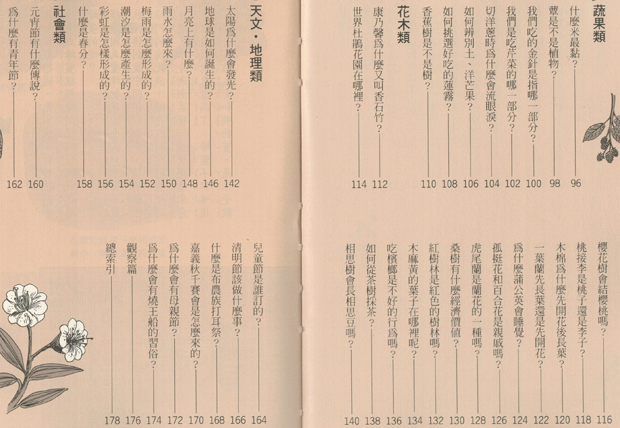 蔬果類
什麼米最黏？ 96
蕈是不是植物？ 98
我們吃的金針是指哪一部分？ 100
我們是吃芹菜的哪一部分？ 102
切洋蔥時爲什麼會流眼淚？ 104
如何辨別土、洋芒果？ 106
如何挑選好吃的蓮霧？ 108
香蕉樹是不是樹？ 110
花木類
康乃馨爲什麼又叫香石竹？ 112
世界杜鵑花園在哪裡？ 114
櫻花樹會結櫻桃嗎？ 116
桃接李是桃子還是李子？ 118
木棉爲什麼先開花後長葉？ 120
一葉蘭先長葉還是先開花？ 122
爲什麼蒲公英會睡覺？ 124
孤挺花和百合花是親戚嗎？ 126
虎尾蘭是蘭花的一種嗎？ 128
桑樹有什麼經濟價值？ 130
紅樹林是紅色的樹林嗎？ 132
木麻黃的葉子在哪裡呢？ 134
吃檳榔是不好的行爲嗎？ 136
如何從茶樹採茶？ 138
相思樹會長相思豆嗎？ 140
天文・地理類
太陽爲什麼會發光？ 142
地球是如何誕生的？ 146
月亮上有什麼？ 148
雨水怎麼來？ 150
梅雨是怎麼形成的？ 152
潮汐是怎麼產生的？ 154
彩虹是怎樣形成的？ 156
什麼是春分？ 158
社會類
元宵節有什麼傳說？ 160
爲什麼有青年節？ 162
兒童節是誰訂的？ 164
清明節該做什麼事？ 166
什麼是布農族打耳祭？ 168
嘉義秋千賽會是怎麼來的？ 170
爲什麼會有母親節？ 172
爲什麼會有燒王船的習俗？ 174
觀察篇 176
總索引 178